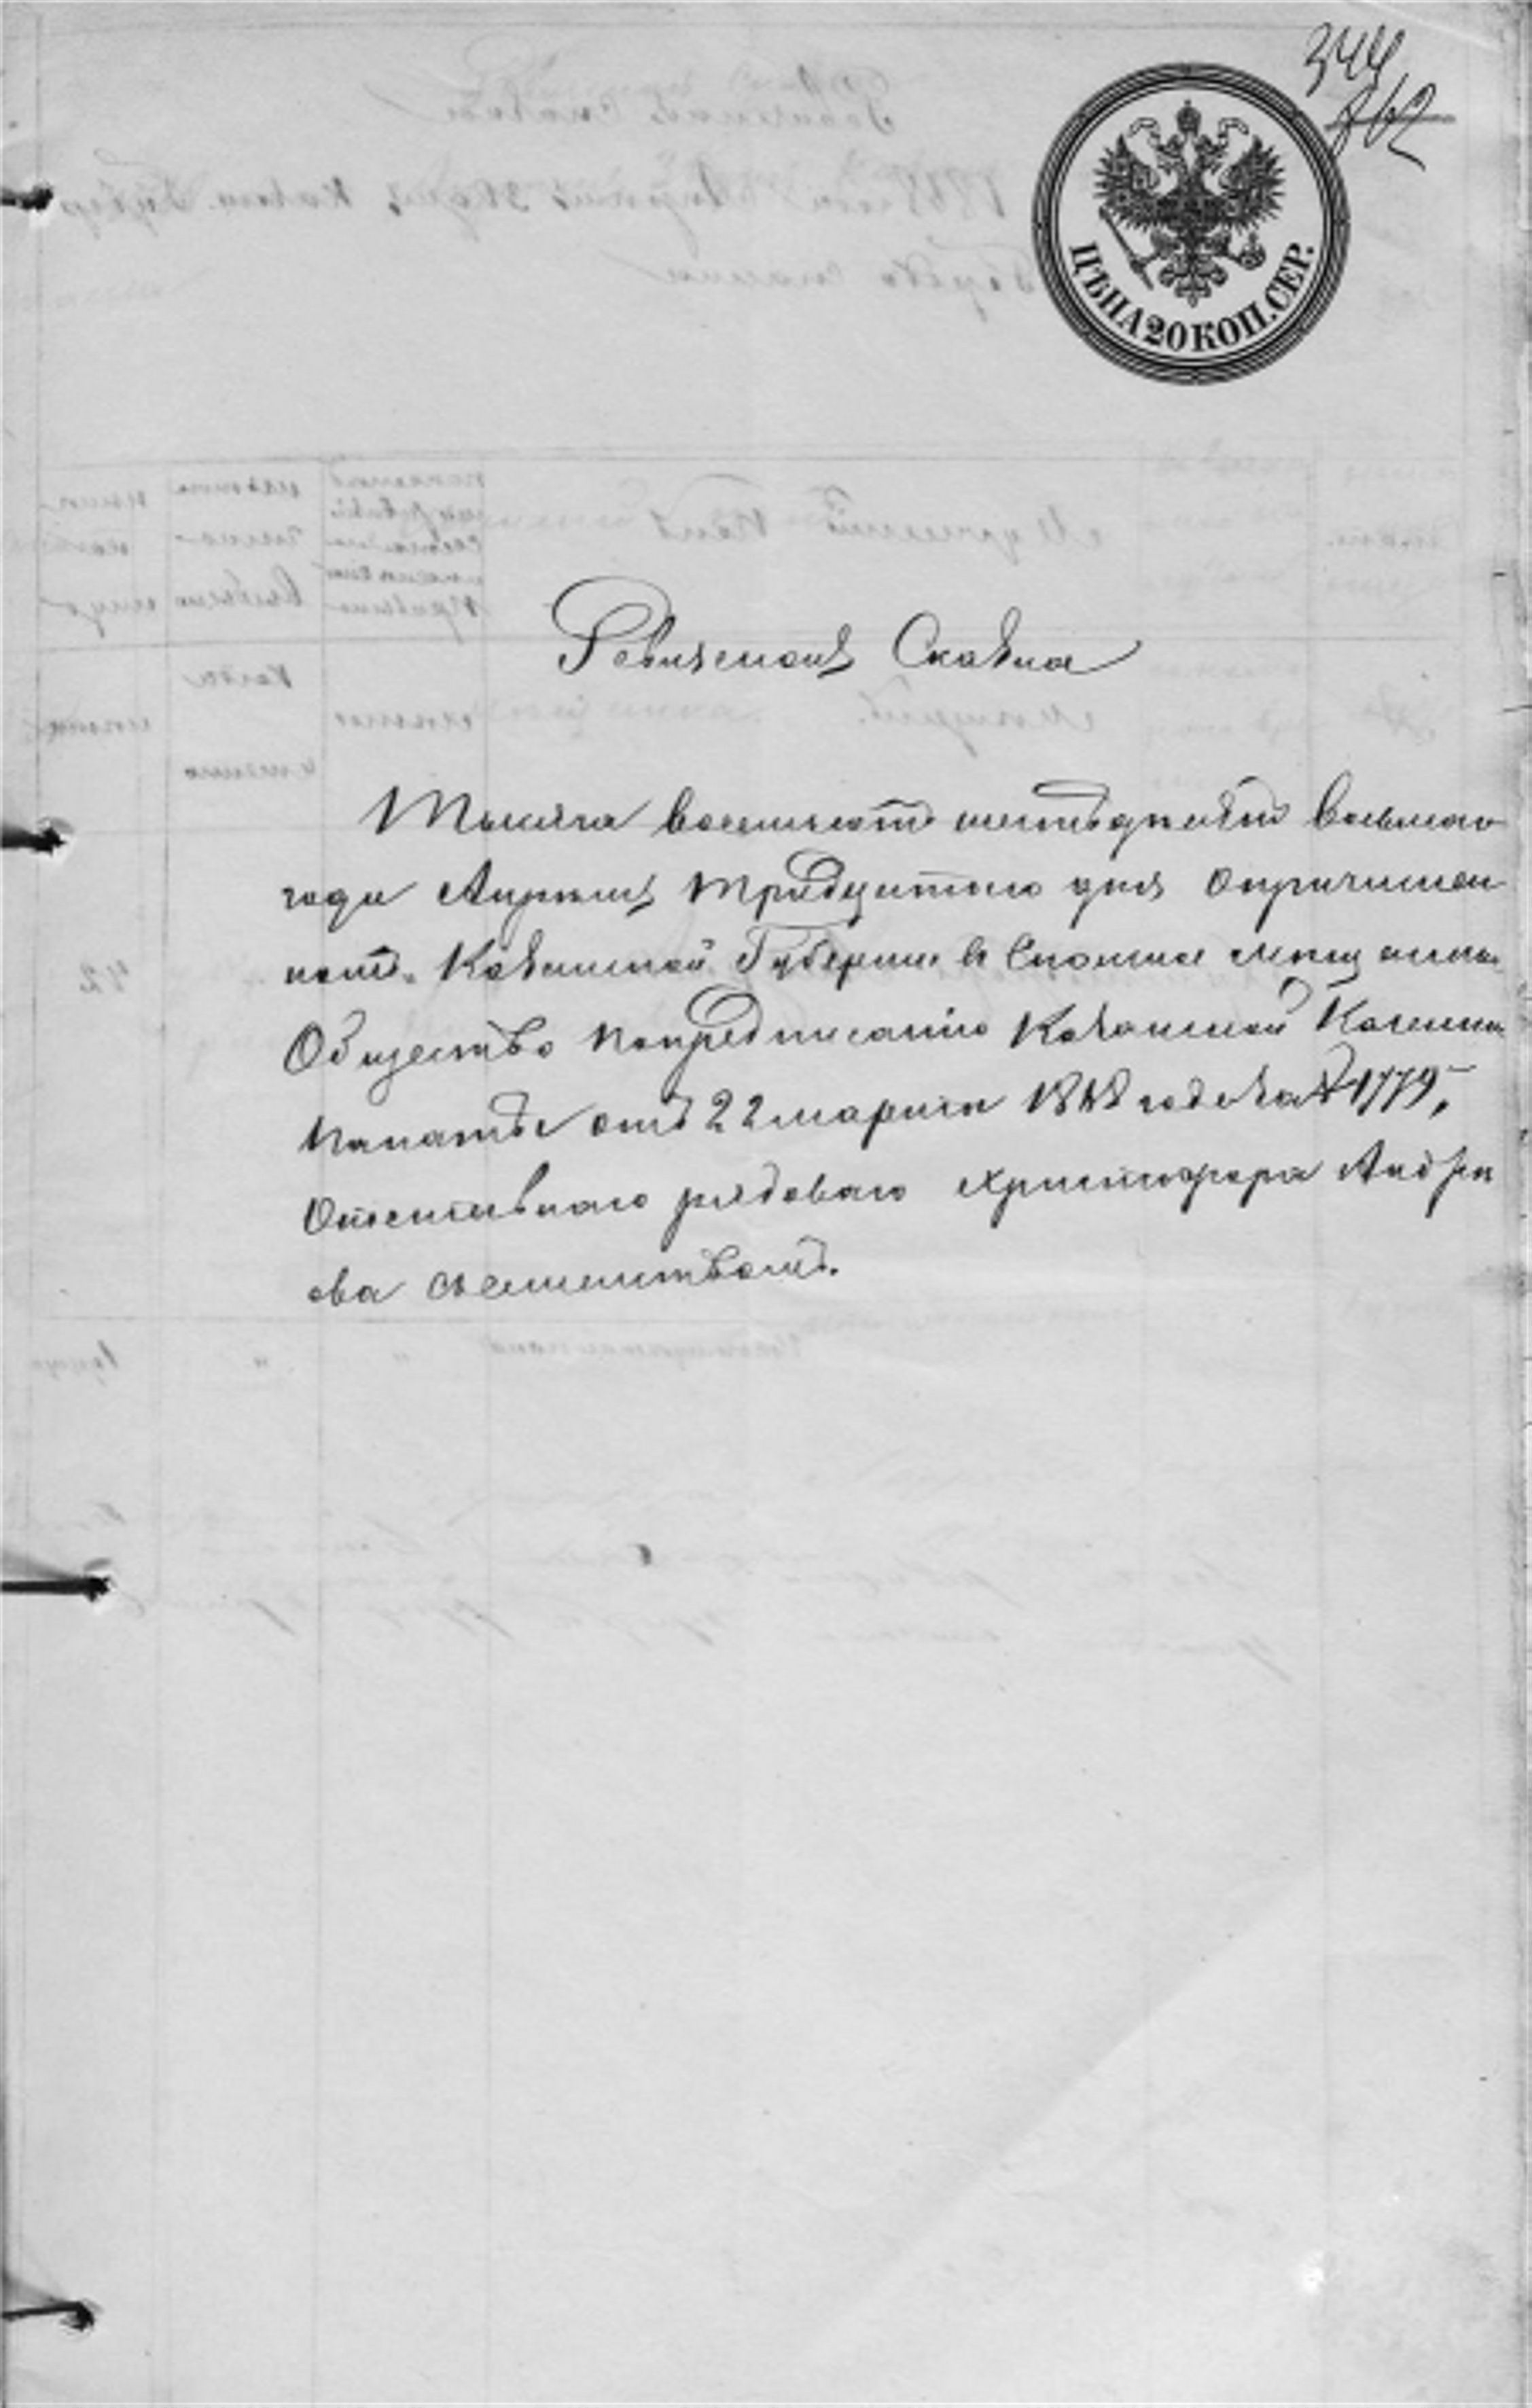 344
862
ЦѢНА 20 КОП. СЕР.
Ревижская Сказка
Тысяча восемьсотъ шестьдесятъ восьмаго
года Апрѣля тридцатаго дня о причислен
номъ Казанской Губернии в Спаское мѣщанское
Общество по предписанію Казанской Казенной
Палаты отъ 22 марта 1868 года за № 1779,
Отставнаго рядоваго Христофора Андре
ева съ семействомъ.